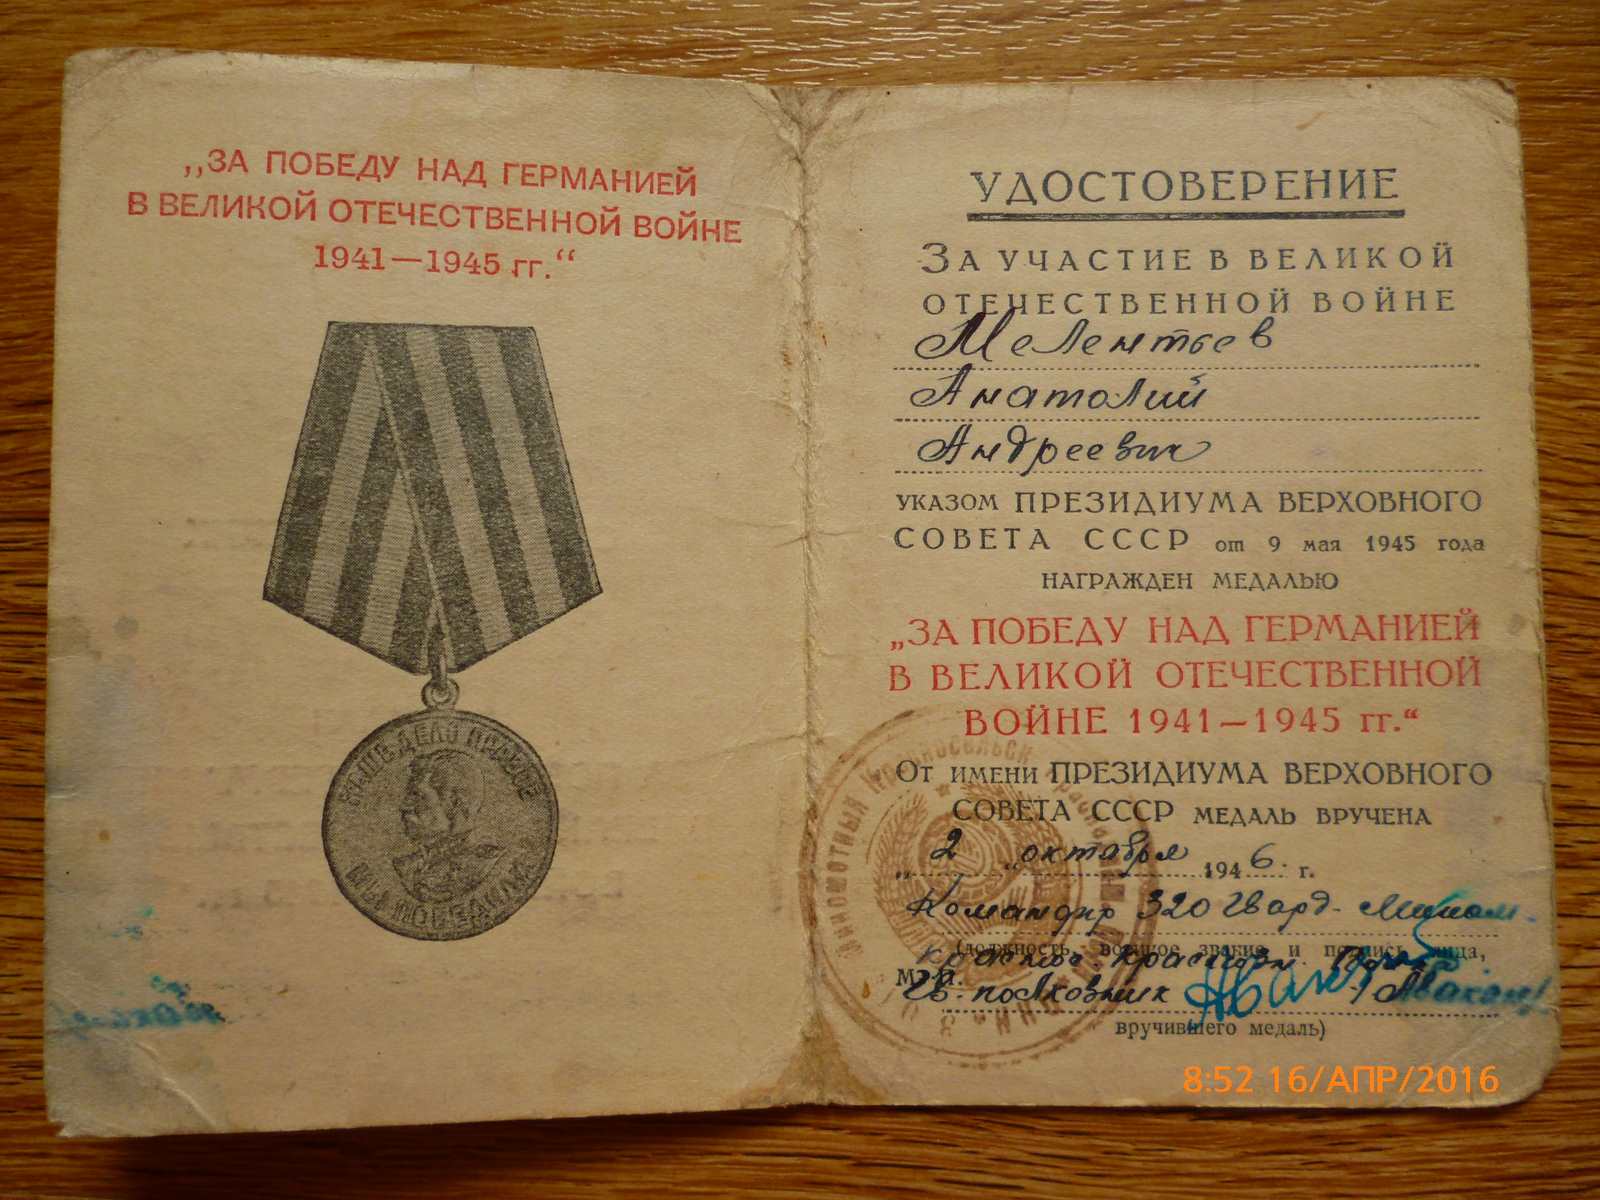 „ЗА ПОБЕДУ НАД ГЕРМАНИЕЙ
В ВЕЛИКОЙ ОТЕЧЕСТВЕННОЙ ВОЙНЕ
1941—1945 гг.“
НАШЕ ДЕЛО ПРАВОЕ
МЫ ПОБЕДИЛИ
УДОСТОВЕРЕНИЕ
ЗА УЧАСТИЕ В ВЕЛИКОЙ
ОТЕЧЕСТВЕННОЙ ВОЙНЕ
Мелентьев
Анатолий
Андреевич
УКАЗОМ ПРЕЗИДИУМА ВЕРХОВНОГО
СОВЕТА СССР от 9 мая 1945 года
НАГРАЖДЕН МЕДАЛЬЮ
„ЗА ПОБЕДУ НАД ГЕРМАНИЕЙ
В ВЕЛИКОЙ ОТЕЧЕСТВЕННОЙ
ВОЙНЕ 1941—1945 гг.“
ОТ ИМЕНИ ПРЕЗИДИУМА ВЕРХОВНОГО
СОВЕТА СССР МЕДАЛЬ ВРУЧЕНА
„2„ октября 1946 г.
Командир 320 гвард. Мином.
(должность, военное звание и подпись лица,
М. П.
Гв. полковник
вручившего медаль)
8:52 16/АПР/2016